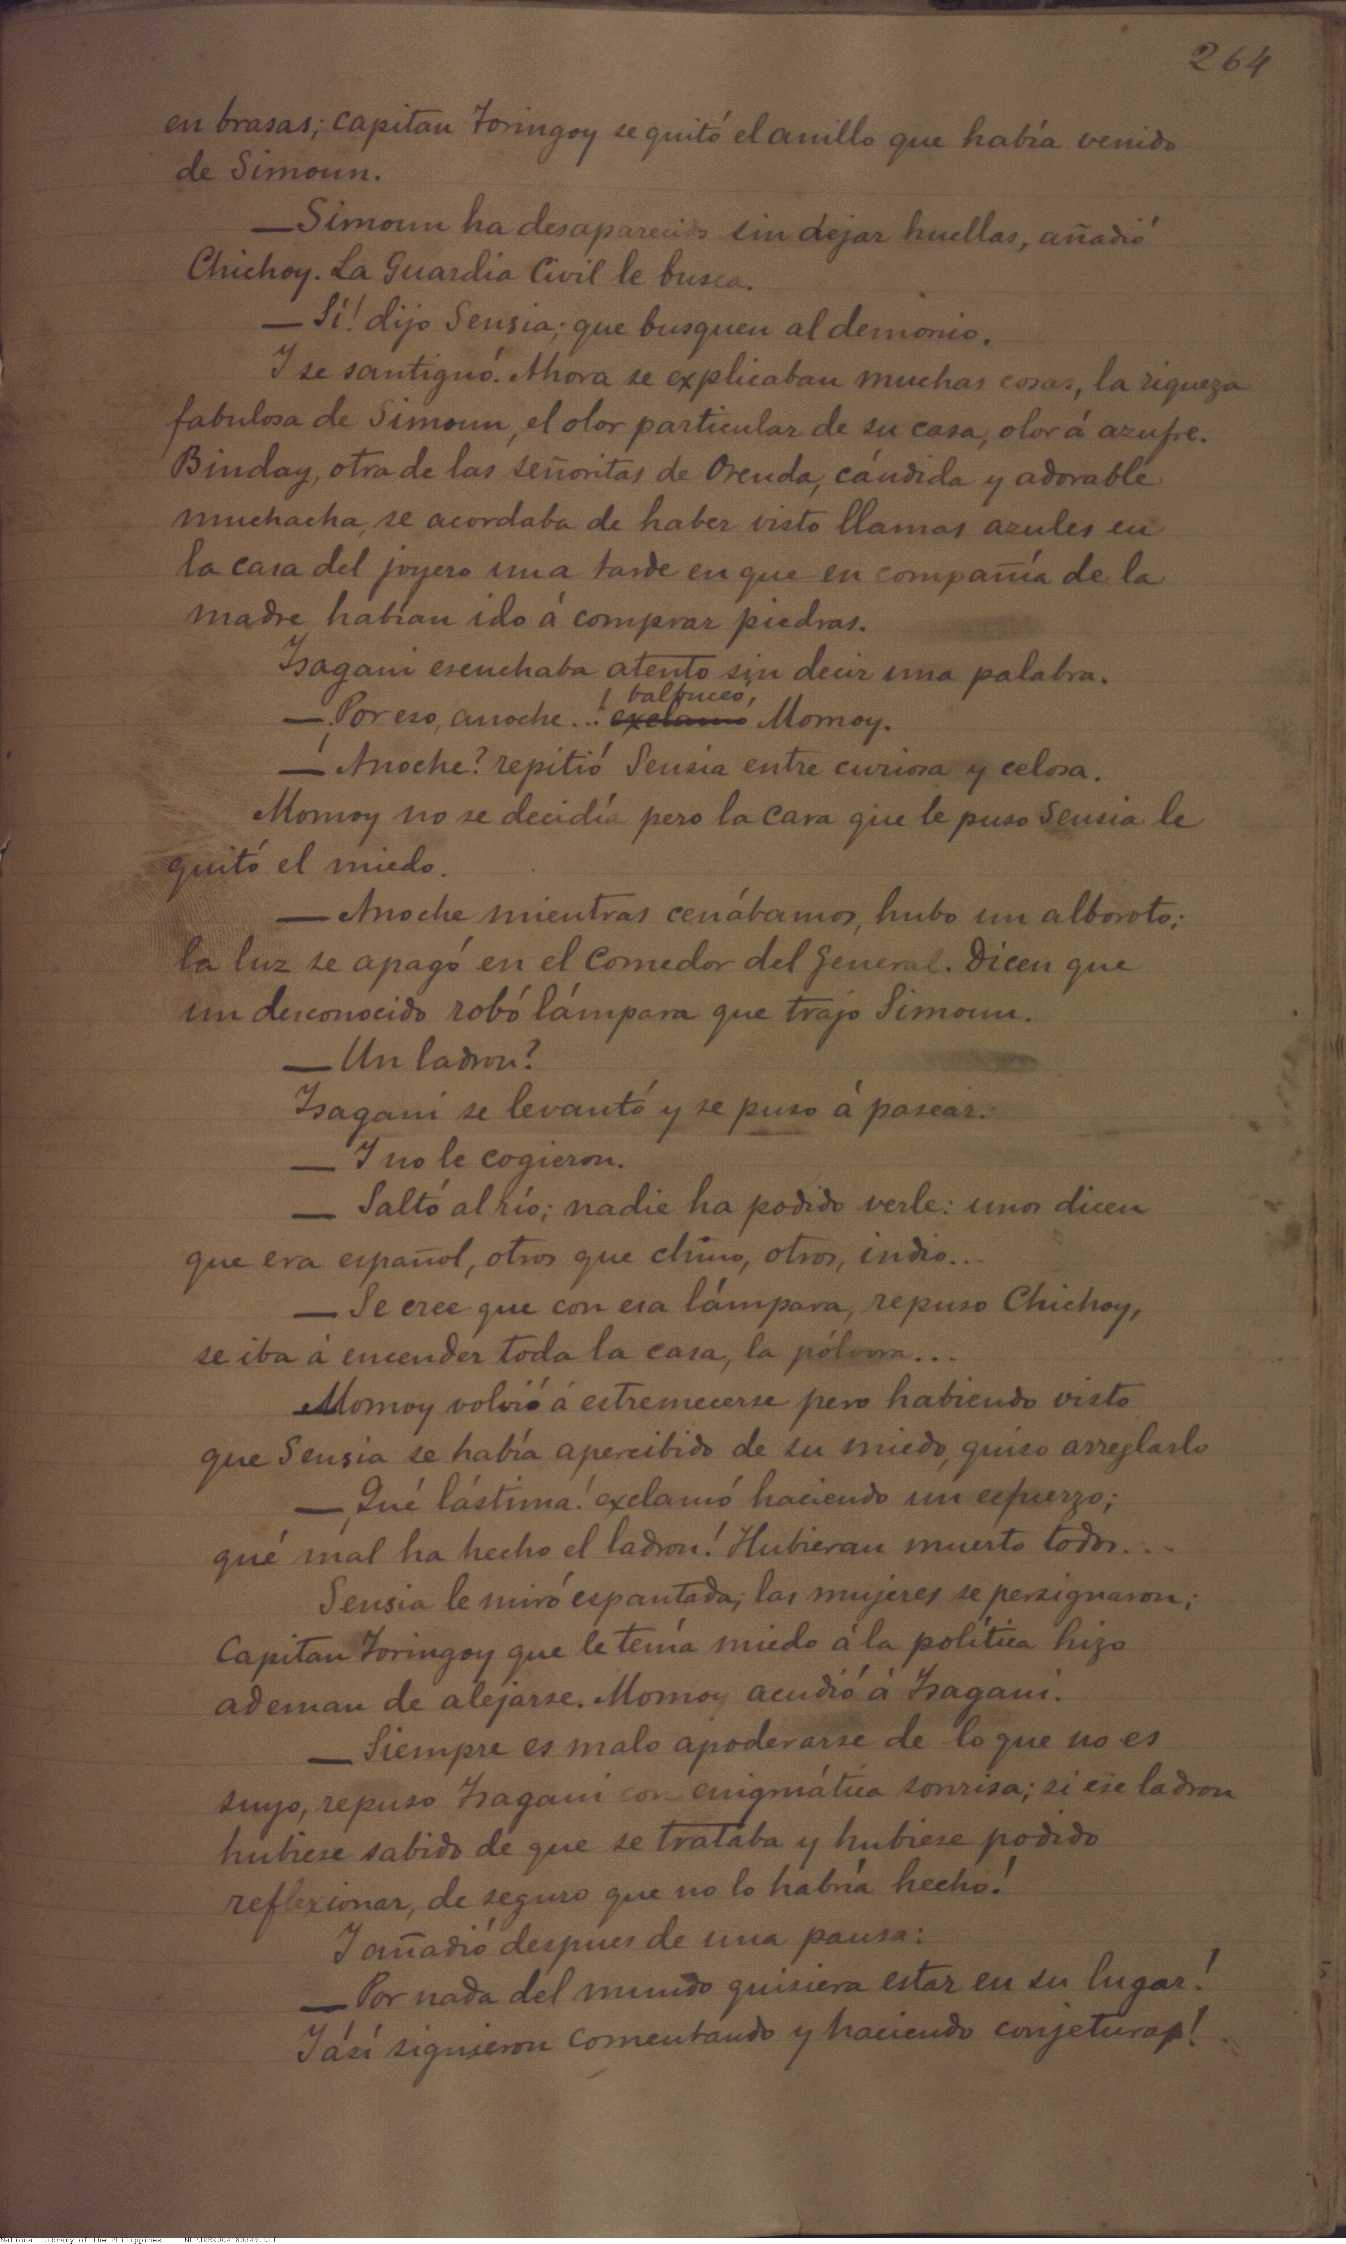 264
en brasas; capitan Toringoy se quitó el anillo que había venido
de Simoun.
—Simoun ha desaparecido sin dejar huellas, añadió
Chichoy. La Guardia Civil le busca.
—Sí! dijo Sensia; que busquen al demonio.
Y se santiguó. Ahora se explicaban muchas cosas, la riqueza
fabulosa de Simoun, el olor particular de su casa, olor á azufre.
Binday, otra de las señoritas de Orenda, cándida y adorable
muchacha, se acordaba de haber visto llamas azules en
la casa del joyero una tarde en que en compañía de la
madre habian ido á comprar piedras.
Isagani escuchaba atento sin decir una palabra.
balbuceó,
—¡Por eso, anoche...! exclamó Momoy.
—¿Anoche? repitió Sensia entre curiosa y celosa.
Momoy no se decidía pero la cara que le puso Sensia le
quitó el miedo.
—Anoche mientras cenábamos, hubo un alboroto;
la luz se apagó en el comedor del General. Dicen que
un desconocido robó lámpara que trajo Simoun.
—Un ladron?
Isagani se levantó y se puso á pasear.
— Y no le cogieron.
— Saltó al río; nadie ha podido verle: unos dicen
que era español, otros que chino, otros, indio...
—Se cree que con esa lámpara, repuso Chichoy,
se iba á encender toda la casa, la pólvora...
Momoy volvió á estremecerse pero habiendo visto
que Sensia se había apercibido de su miedo, quiso arreglarlo
—¡Qué lástima! exclamó haciendo un esfuerzo;
qué mal ha hecho el ladron! Hubieran muerto todos...
Sensia le miró espantada; las mujeres se persignaron;
Capitan Toringoy que le tenía miedo á la política hizo
ademan de alejarse. Momoy acudió á Isagani.
—Siempre es malo apoderarse de lo que no es
suyo, repuso Isagani con enigmática sonrisa; si ese ladron
hubiese sabido de que se trataba y hubiese podido
reflexionar, de seguro que no lo habría hecho!
Y añadió despues de una pausa:
—Por nada del mundo quisiera estar en su lugar!
Y así siguieron comentando y haciendo conjeturas!
National Library of the Philippines